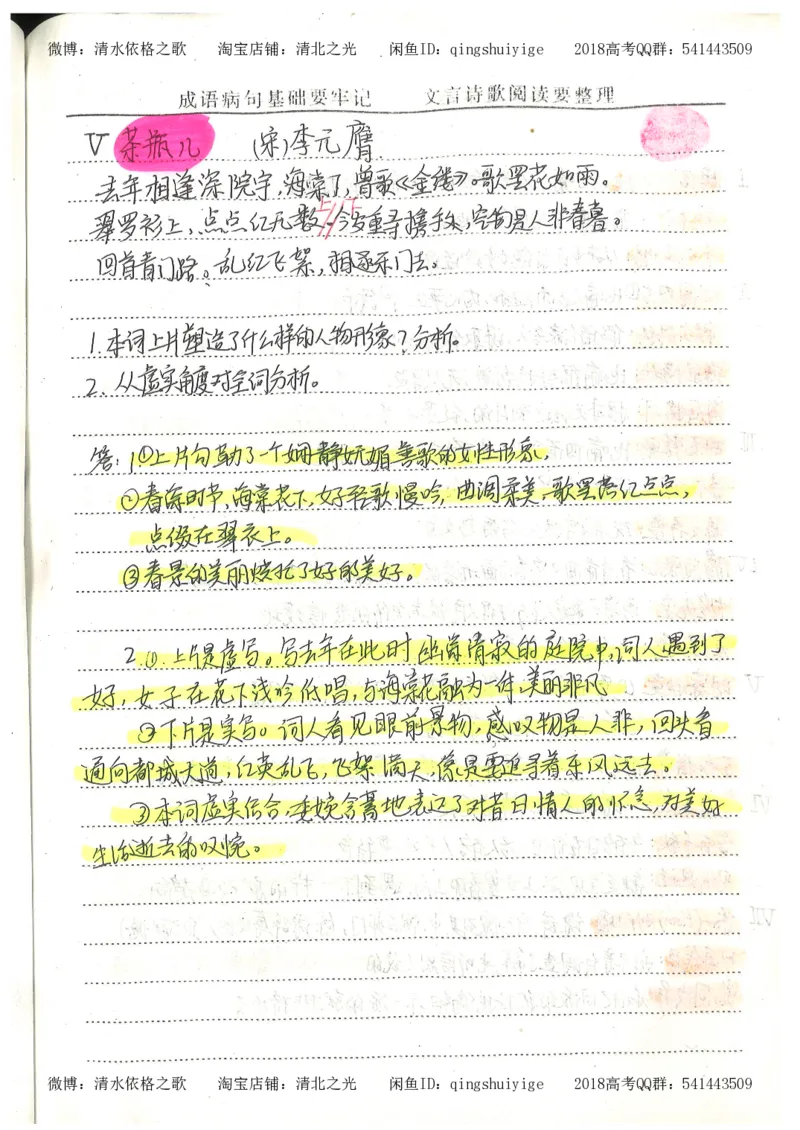 微博：清水依格之歌 淘宝店铺：清北之光 闲鱼ID：qingshuiyige 2018高考QQ群：541443509
成语病句基础要牢记 文言诗歌阅读要整理
V 茶瓶儿 (宋)李元膺
去年相逢深院宇，海棠下，曾歌《金缕》。歌罢花如雨。
翠罗衫上，点点红无数。上//下今岁重寻携手处，空物是人非春暮。
回首青门路。乱红飞絮，相逐东门去。
1. 本词上片塑造了什么样的人物形象？分析。
2. 从虚实角度对全词分析。
答：1①上片勾勒了一个娴静妩媚善歌的女性形象。
②春深时节，海棠花下，女子轻歌慢吟，曲调柔美，歌罢落红点点，
点缀在翠衣上。
③春景的美丽烘托了女子的美好。
2. ①. 上片是虚写。写去年在此时幽深清寂的庭院中，词人遇到了
女子，女子在花下浅吟低唱，与海棠花融为一体，美丽非凡
②下片是实写。词人看见眼前景物，感叹物是人非，回头看
通向都城大道，红英乱飞，飞絮满天，像是要追寻着东风远去。
③本词虚实结合，委婉含蓄地表达了对昔日情人的怀念，对美好
生活逝去的叹惋。
微博：清水依格之歌 淘宝店铺：清北之光 闲鱼ID：qingshuiyige 2018高考QQ群：541443509